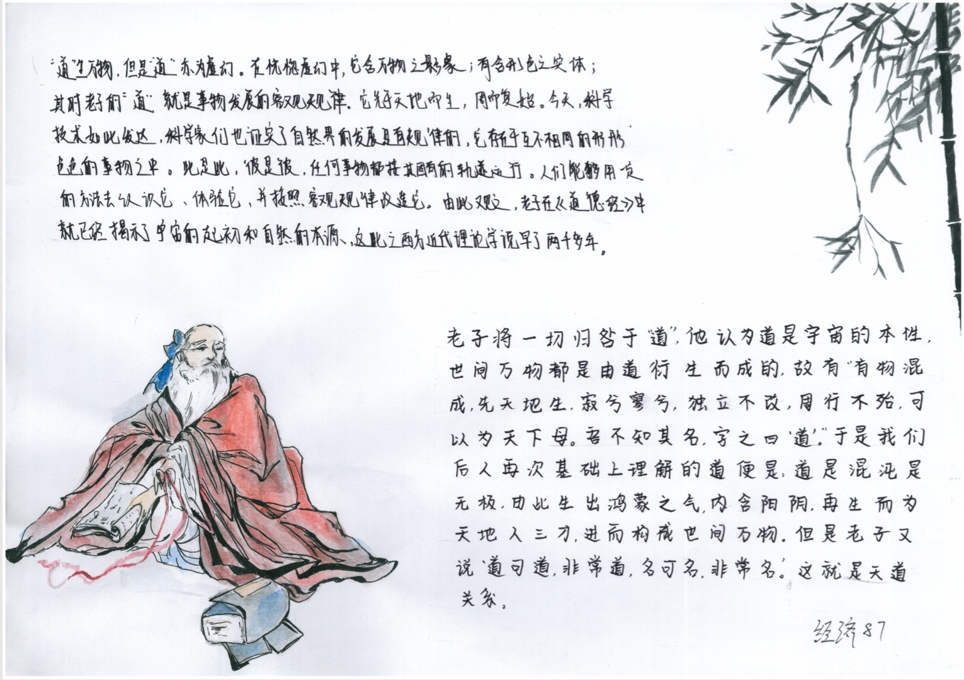 "道"生万物,但是"道"亦为虚幻。在恍惚虚幻中,包含万物之形象;有含形色之实体;
其时老子的"道"就是事物发展的客观规律。它先于天地而生,周而复始。今天,科学
技术如此发达,科学家们也证实了自然界的发展是有规律的,它存于互不相同的形形
色色的事物之中。此是此,彼是彼,任何事物都按其固有的轨迹运行。人们能够用
的方法去认识它、体验它、并按照客观规律改造它。由此观之,老子在《道德经》中
就已经揭示了宇宙的起初和自然的本源、这比之西方近代理论学说早了两千多年。
老子将一切归咎于"道",他认为道是宇宙的本性,
世间万物都是由道衍生而成的,故有"有物混
成,先天地生,寂兮寥兮,独立不改,周行不殆,可
以为天下母。吾不知其名,字之曰'道'。"于是我们
后人再次基础上理解的道便是,道是混沌是
无极,由此生出鸿蒙之气,内含阳阴,再生而为
天地人三才,进而构成世间万物。但是老子又
说'道可道,非常道,名可名,非常名'。这就是天道
关系。
经济87